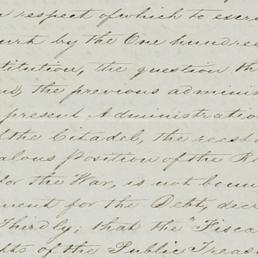 respect of which to
by the One hundred
titution, the question th
the previous adminis
present Administration
the Citadel, the
alous Position of the R
for the War, is not
ment for the Debt, dec
Thirdly; that the "Fisca
ts of the Public Treas